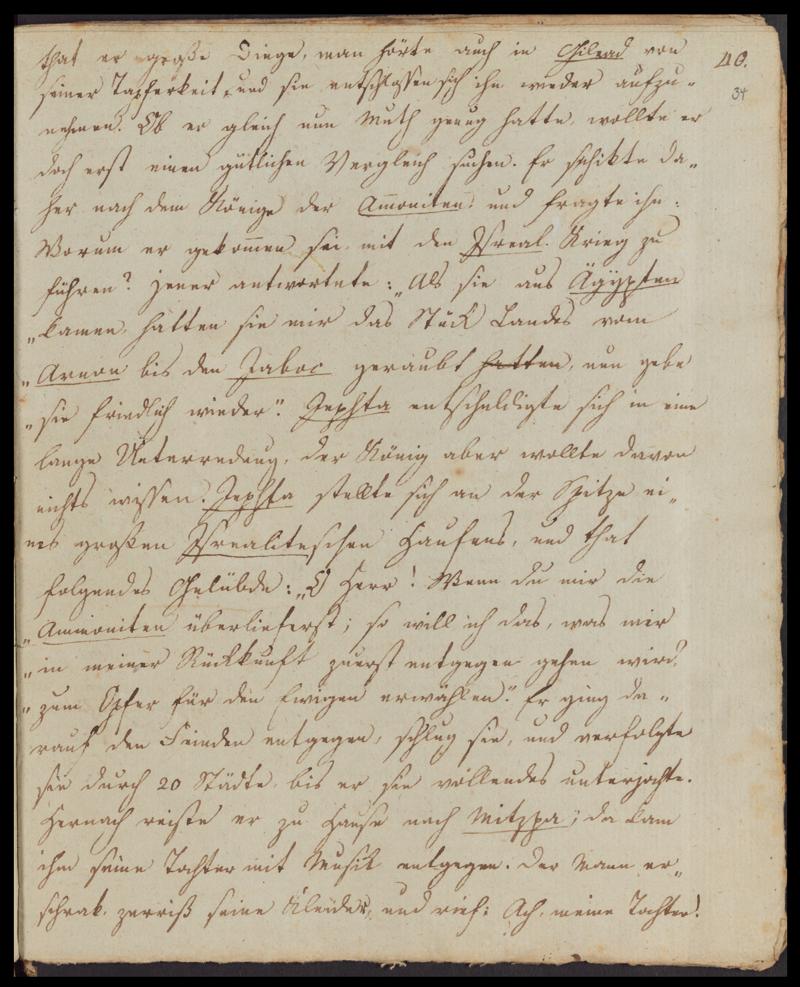 that er große Dinge, man hörte auch in Gilead von
40.
seiner Tapferkeit, und sie entschlossen sich ihn wieder aufzu-
34
nehmen. Ob er gleich nun Muth genug hatte, wollte er
doch erst einen gütlichen Vergleich suchen. Er schikte da„
her nach dem Könige der Am̄oniten, und fragte ihn:
Worum er gekom̄en sei mit den Jsreal. Krieg zu
führen? Jener antwortete: „Als sie aus Ägypten
„kamen, hatten sie mir das Stück Landes vom
„Arnon bis den Jaboc geraubt hatten, nun gebe
„sie friedlich wieder“. Jephta entschuldigte sich in eine
lange Unterredung, der König aber wollte davon
nichts wissen. Jephta stellte sich an der Spitze ei„
nes großen Jsrealiteschen Haufens, und that
folgendes Gelübde: „O Herr! Wenn du mir die
„Ammoniten überlieferst; so will ich das, was mir
„in meiner Rückkunft zuerst entgegen gehen wird,
„zum Opfer für den Ewigen erwählen“. Er ging da„
rauf den Feinden entgegen, schlug sie, und verfolgte
sie durch 20 Städte, bis er sie vollendes unterjochte.
Hernach reiste er zu Hause nach Mitzpa; da kam
ihm seine Tochter mit Musik entgegen. Der Mann er„
schrak, zerriß seine Kleider, und rief: Ach, meine Tochter!